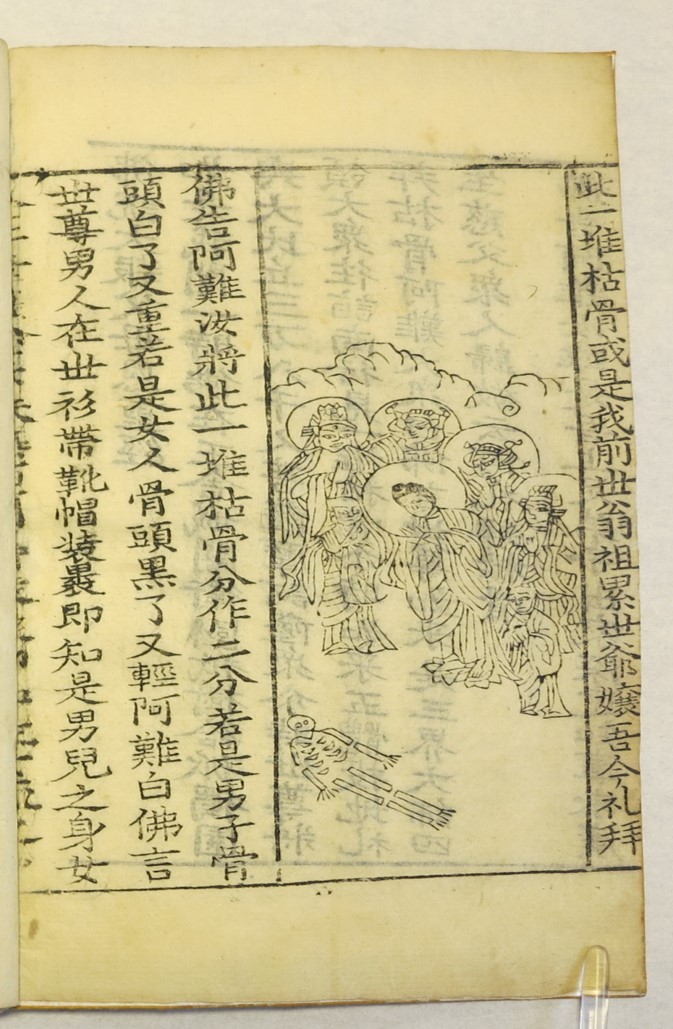 此一堆枯骨或是我前世翁祖累世爺孃吾今礼拜
佛告阿難汝將此一堆枯骨分作二分若是男子骨
頭白了又重若是女人骨頭黑了又輕阿難白佛言
世尊男人在世衫帶靴帽裝裹即知是男兒之身女